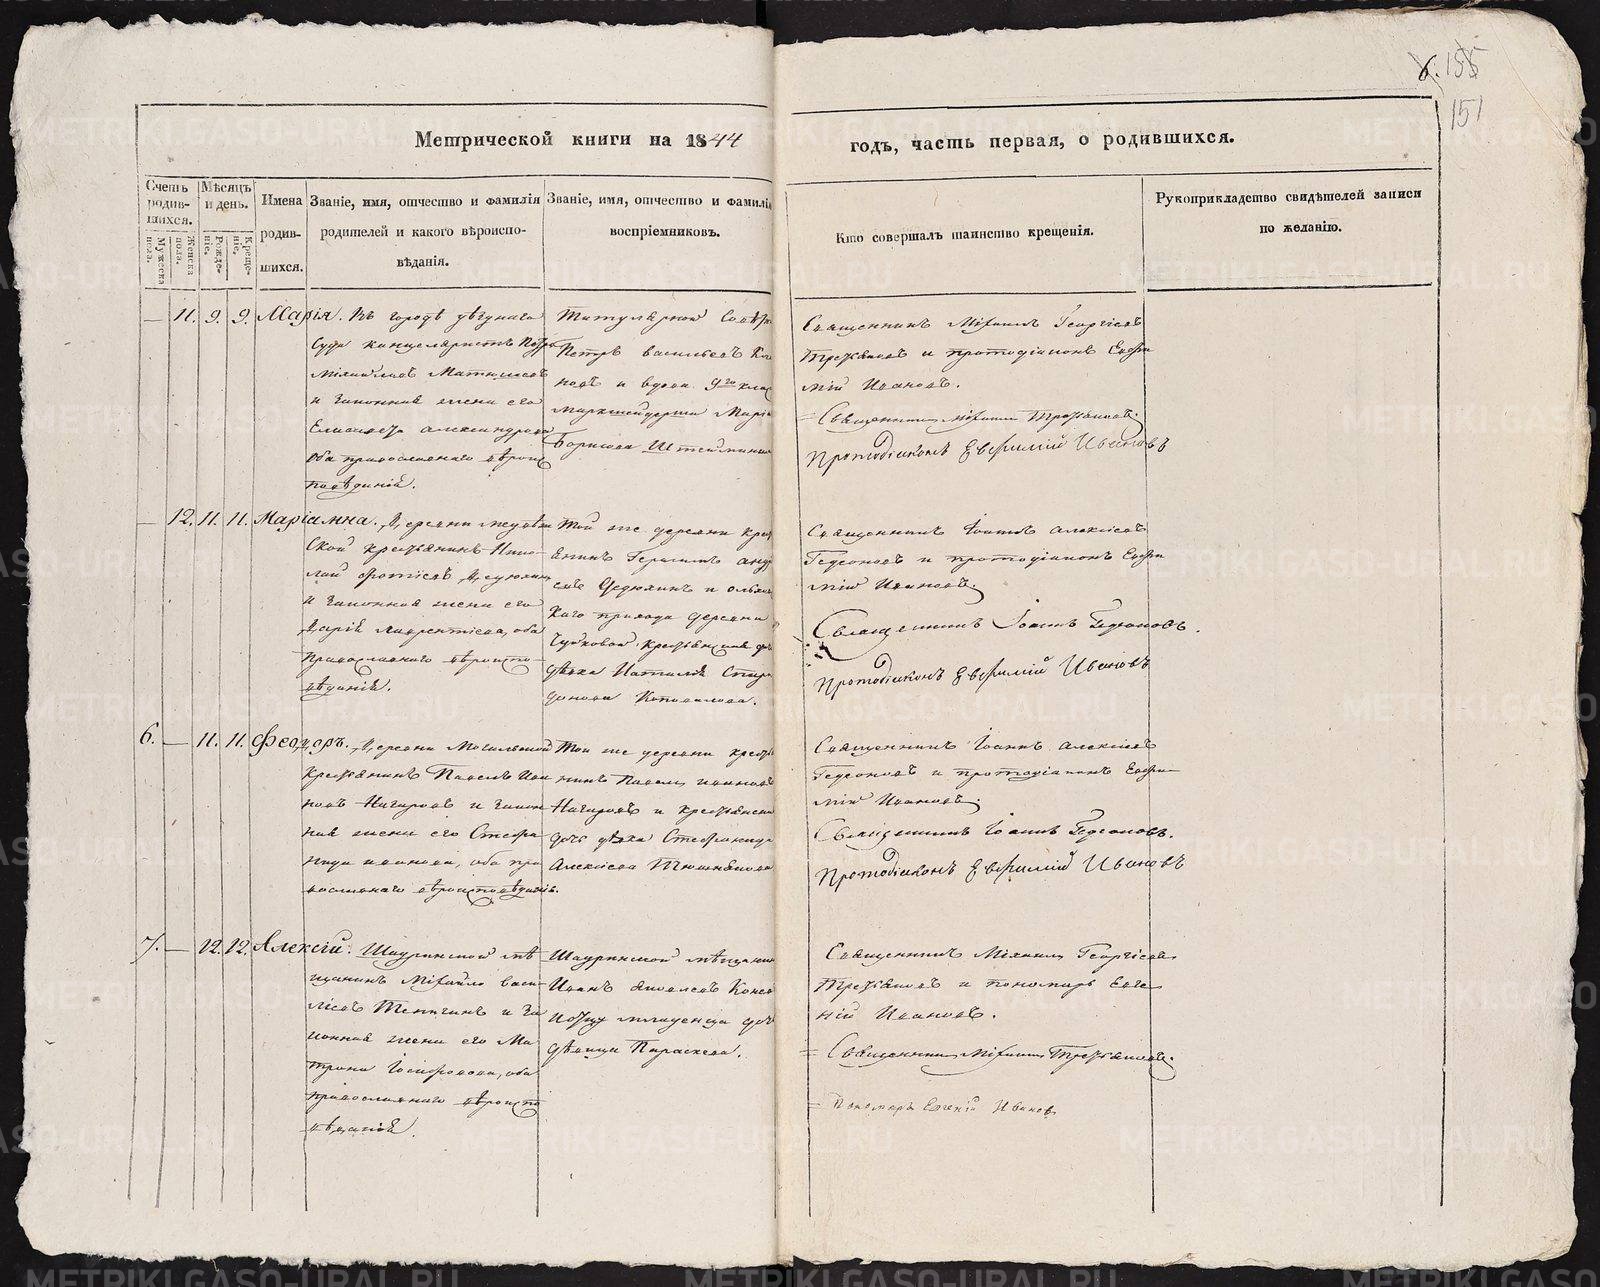 6. 155
151
Метрической книги на 1844 годъ, часть первая, о родившихся.
Счетъ родив- шихся.
Мужеска пола.
Женска пола.
Мѣсяцъ и день.
Рожде- ніе.
Креще- ніе.
Имена родив- шихся.
Званіе, имя, отчество и фамилія родителей и какого вѣроиспо- вѣданія.
Званіе, имя, отчество и фамилія воспріемниковъ.
Кто совершалъ таинство крещенія.
Рукоприкладство свидѣтелей записи по желанію.
— 11. 9. 9. Марія.
Въ городѣ уѣзднаго
Суда канцеляристъ Петръ
и законная жена его
Елисавета Александрова
оба православнаго вѣроис
повѣданія.
Титулярной Совѣт
Петръ Васильевъ
и вдова 9го клас
Маркшейдерша Марія
Борисова
Священникъ Михаилъ Георгіевъ
Третьяковъ и протодіаконъ Евфи
мій Ивановъ.
= Священникъ Михаилъ Третьяковъ.
Протодіаконъ Евфимій Ивановъ
— 12. 11. 11. Маріамна.
Деревни
ской крестьянинъ Нико
лай
и законная жена его
Дарія Лаврентіева, оба
православнаго вѣроиспо
вѣданія.
Той же деревни крес
янинъ Герасимъ
каго прихода деревни
крестьянская
дѣвка Наталія Спири
донова Коновалова.
Священникъ Іоаннъ Алексіевъ
Гедеоновъ и протодіаконъ Евфи
мій Ивановъ.
Священникъ Іоаннъ Гедеоновъ.
Протодіаконъ Евфимій Ивановъ
6. — 11. 11. Феодоръ.
Деревни Могильной
крестьянинъ Павелъ Ива
новъ и закон
ная жена его Стефа
нида Иванова, оба пра
вославнаго вѣроисповѣданія.
Той же деревни кресть
нинъ Ивановъ
и крестьянска
дочь дѣвка Стефанида
Алексіева
Священникъ Іоаннъ Алексіевъ
Гедеоновъ и протодіаконъ Евфи
мій Ивановъ.
Священникъ Іоаннъ Гедеоновъ.
Протодіаконъ Евфимій Ивановъ
7. — 12. 12. Алексій.
Шадринской мѣ
щанинъ Михайло Васи
ліевъ и за
конная жена его Ма
трона оба
православнаго вѣроиспо
вѣданія.
Шадринской мѣщанин
Иванъ Яковлевъ
младенца
дѣвица Параскева.
Священникъ Михаилъ Георгіевъ
Третьяковъ и пономарь Евге
ній Ивановъ.
= Священникъ Михаилъ Третьяковъ.
= Пономарь Евгеній Ивановъ
METRIKI.GASO-URAL.RU